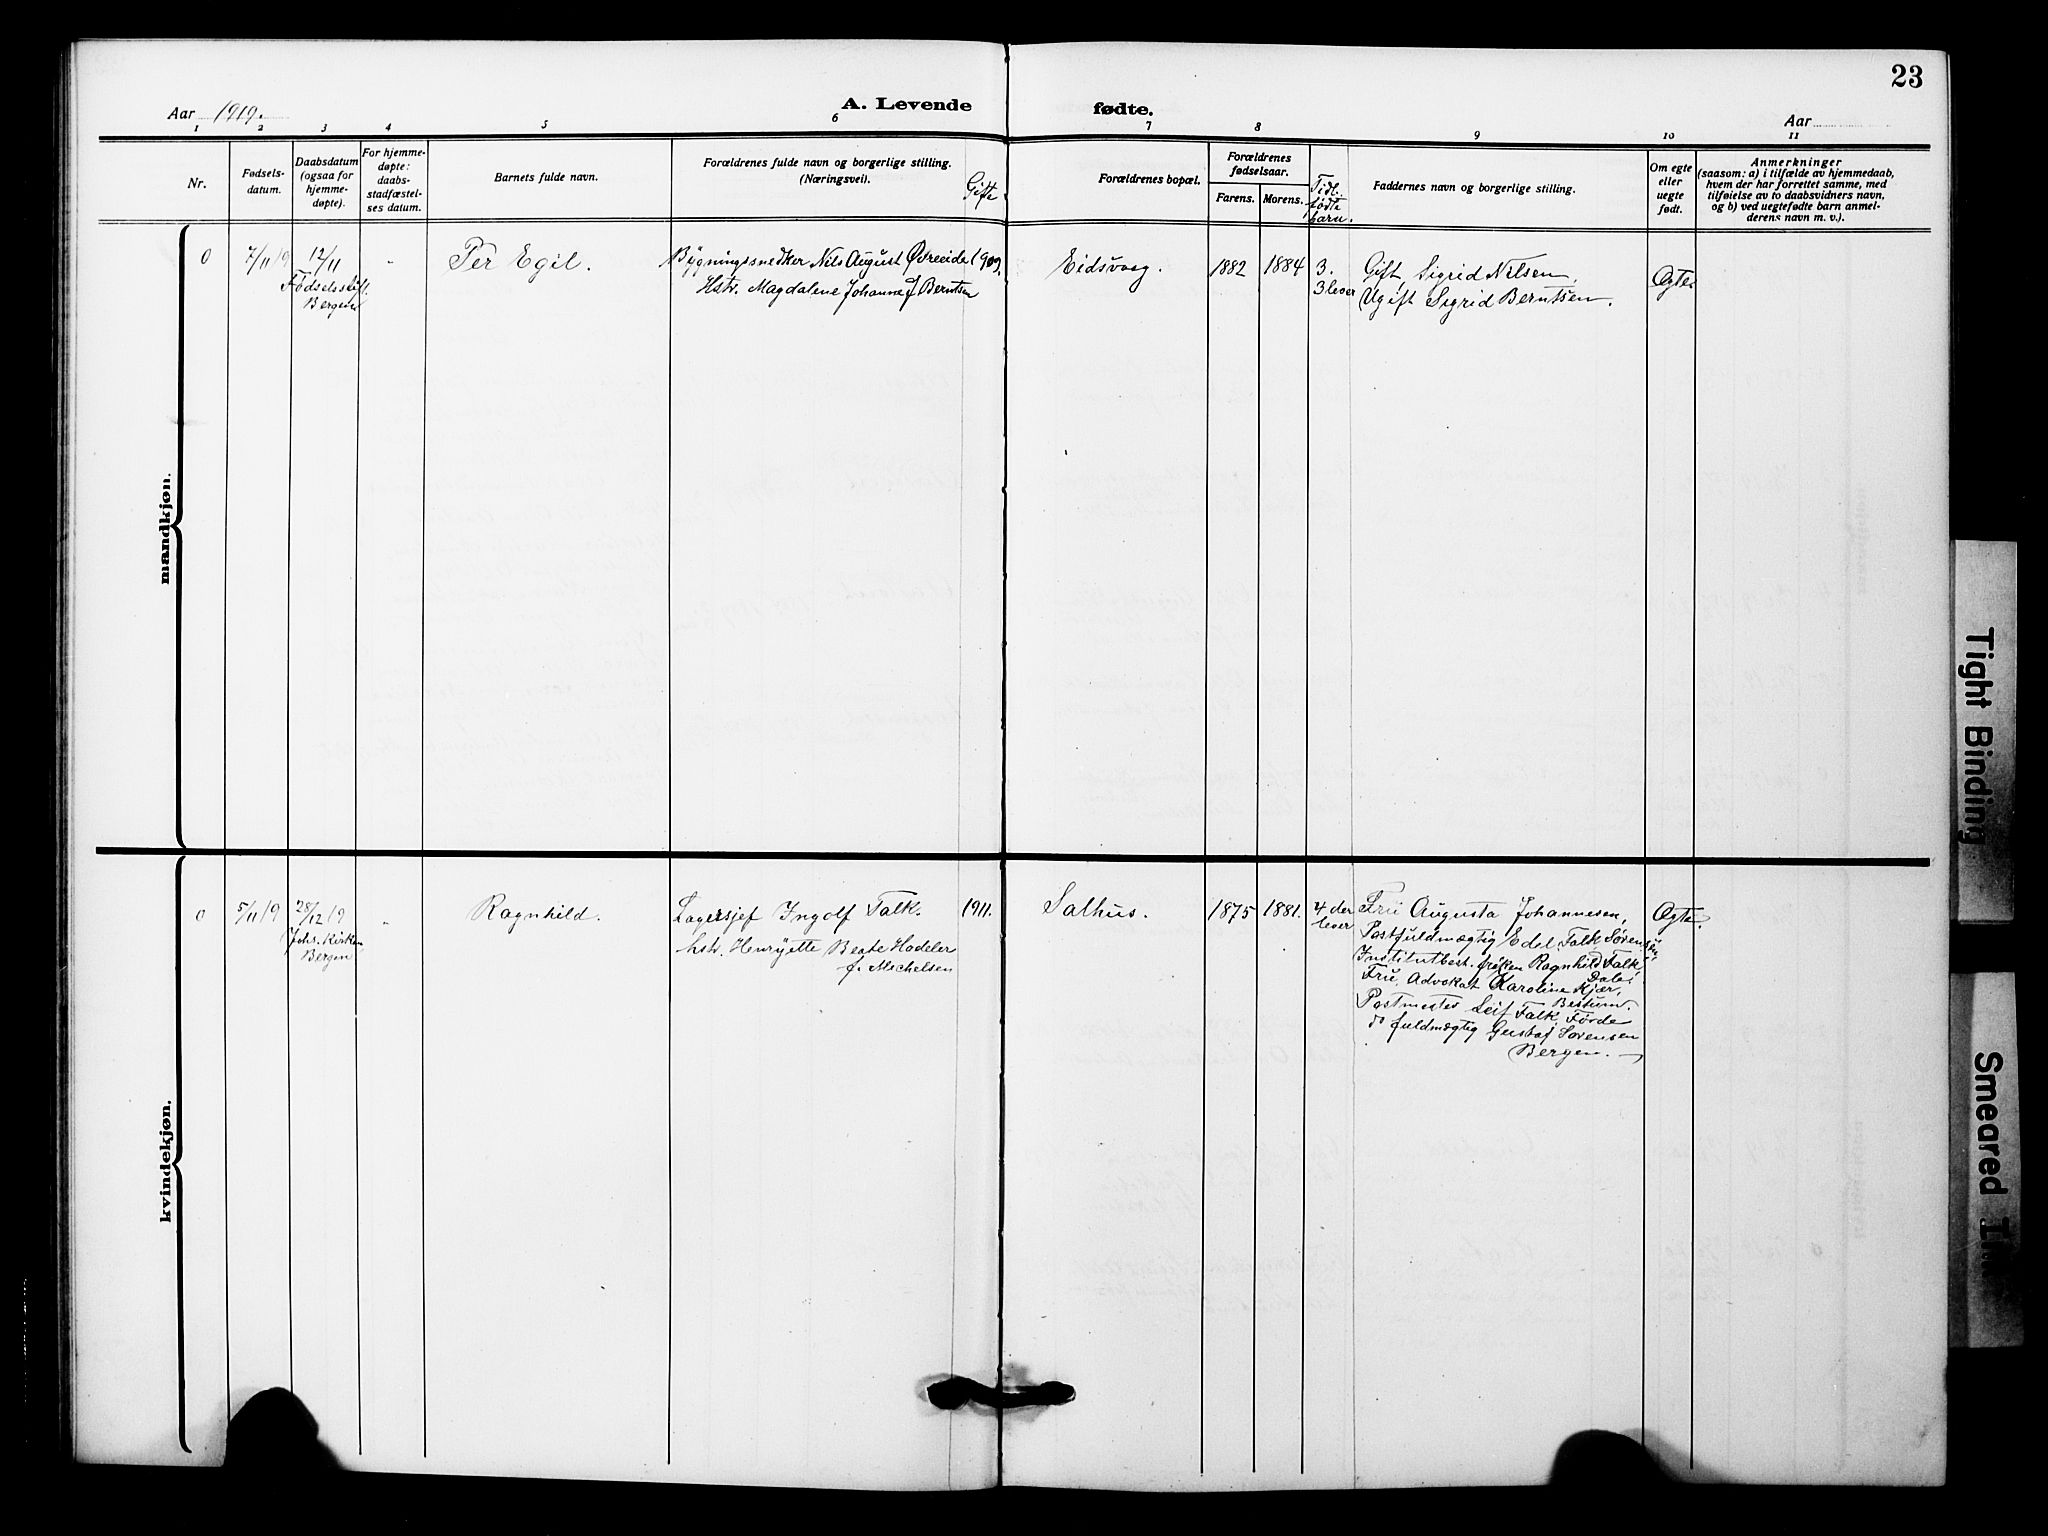 23
Aar 1919.
A. Levende fødte.
Aar
1 2 3 4 5 6 7 8 9 10 11
Nr.
Fødsels-
datum.
Daabsdatum
(ogsaa for
hjemme-
døpte).
For hjemme-
døpte:
daabs-
stadfæstel-
ses datum.
Barnets fulde navn.
Forældrenes fulde navn og borgerlige stilling.
(Næringsvei).
Gifte
Forældrenes bopæl.
Forældrenes
fødselsaar.
Farens. Morens.
Tidl.
fødte
barn.
Faddernes navn og borgerlige stilling.
Om egte
eller
uegte
født.
Anmerkninger
(saasom: a) i tilfælde av hjemmedaab,
hvem der har forrettet samme, med
tilføielse av to daabsvidners navn,
og b) ved uegtefødte barn anmel-
derens navn m. v.).
mandkjøn.
0
7/11 19
12/11
Fødselsstift.
Bergen
"
Per Egil.
Bygningssnedker Nils August Øvreeide
Hstr. Magdalene Johanne f Berntsen
1909.
Eidsvaag.
1882
1884
3.
3 lever
Gift, Sigrid Nilsen,
Ugift Sigrid Berntsen.
Ægte
kvindekjøn.
0
5/11 19
28/12 19
Johs. Kirken
Bergen
"
Ragnhild.
Lagersjef Ingolf Falk.
hstr. Henryette Beate Hodeler
f. Michelsen
1911.
Salhus.
1875
1881.
4 der
lever
Frü Augusta Johannesen,
Postfuldmægtig Edel Falk Sørensen,
Institutbest. frøken Ragnhild Falk,
Dale,
Fru, Advokat Karoline Kjær,
Bestum.
Postmester Leif Falk, Førde
do fuldmægtig Gustaf Sørensen
Bergen. —
Ægte.
Tight Binding
Smeared